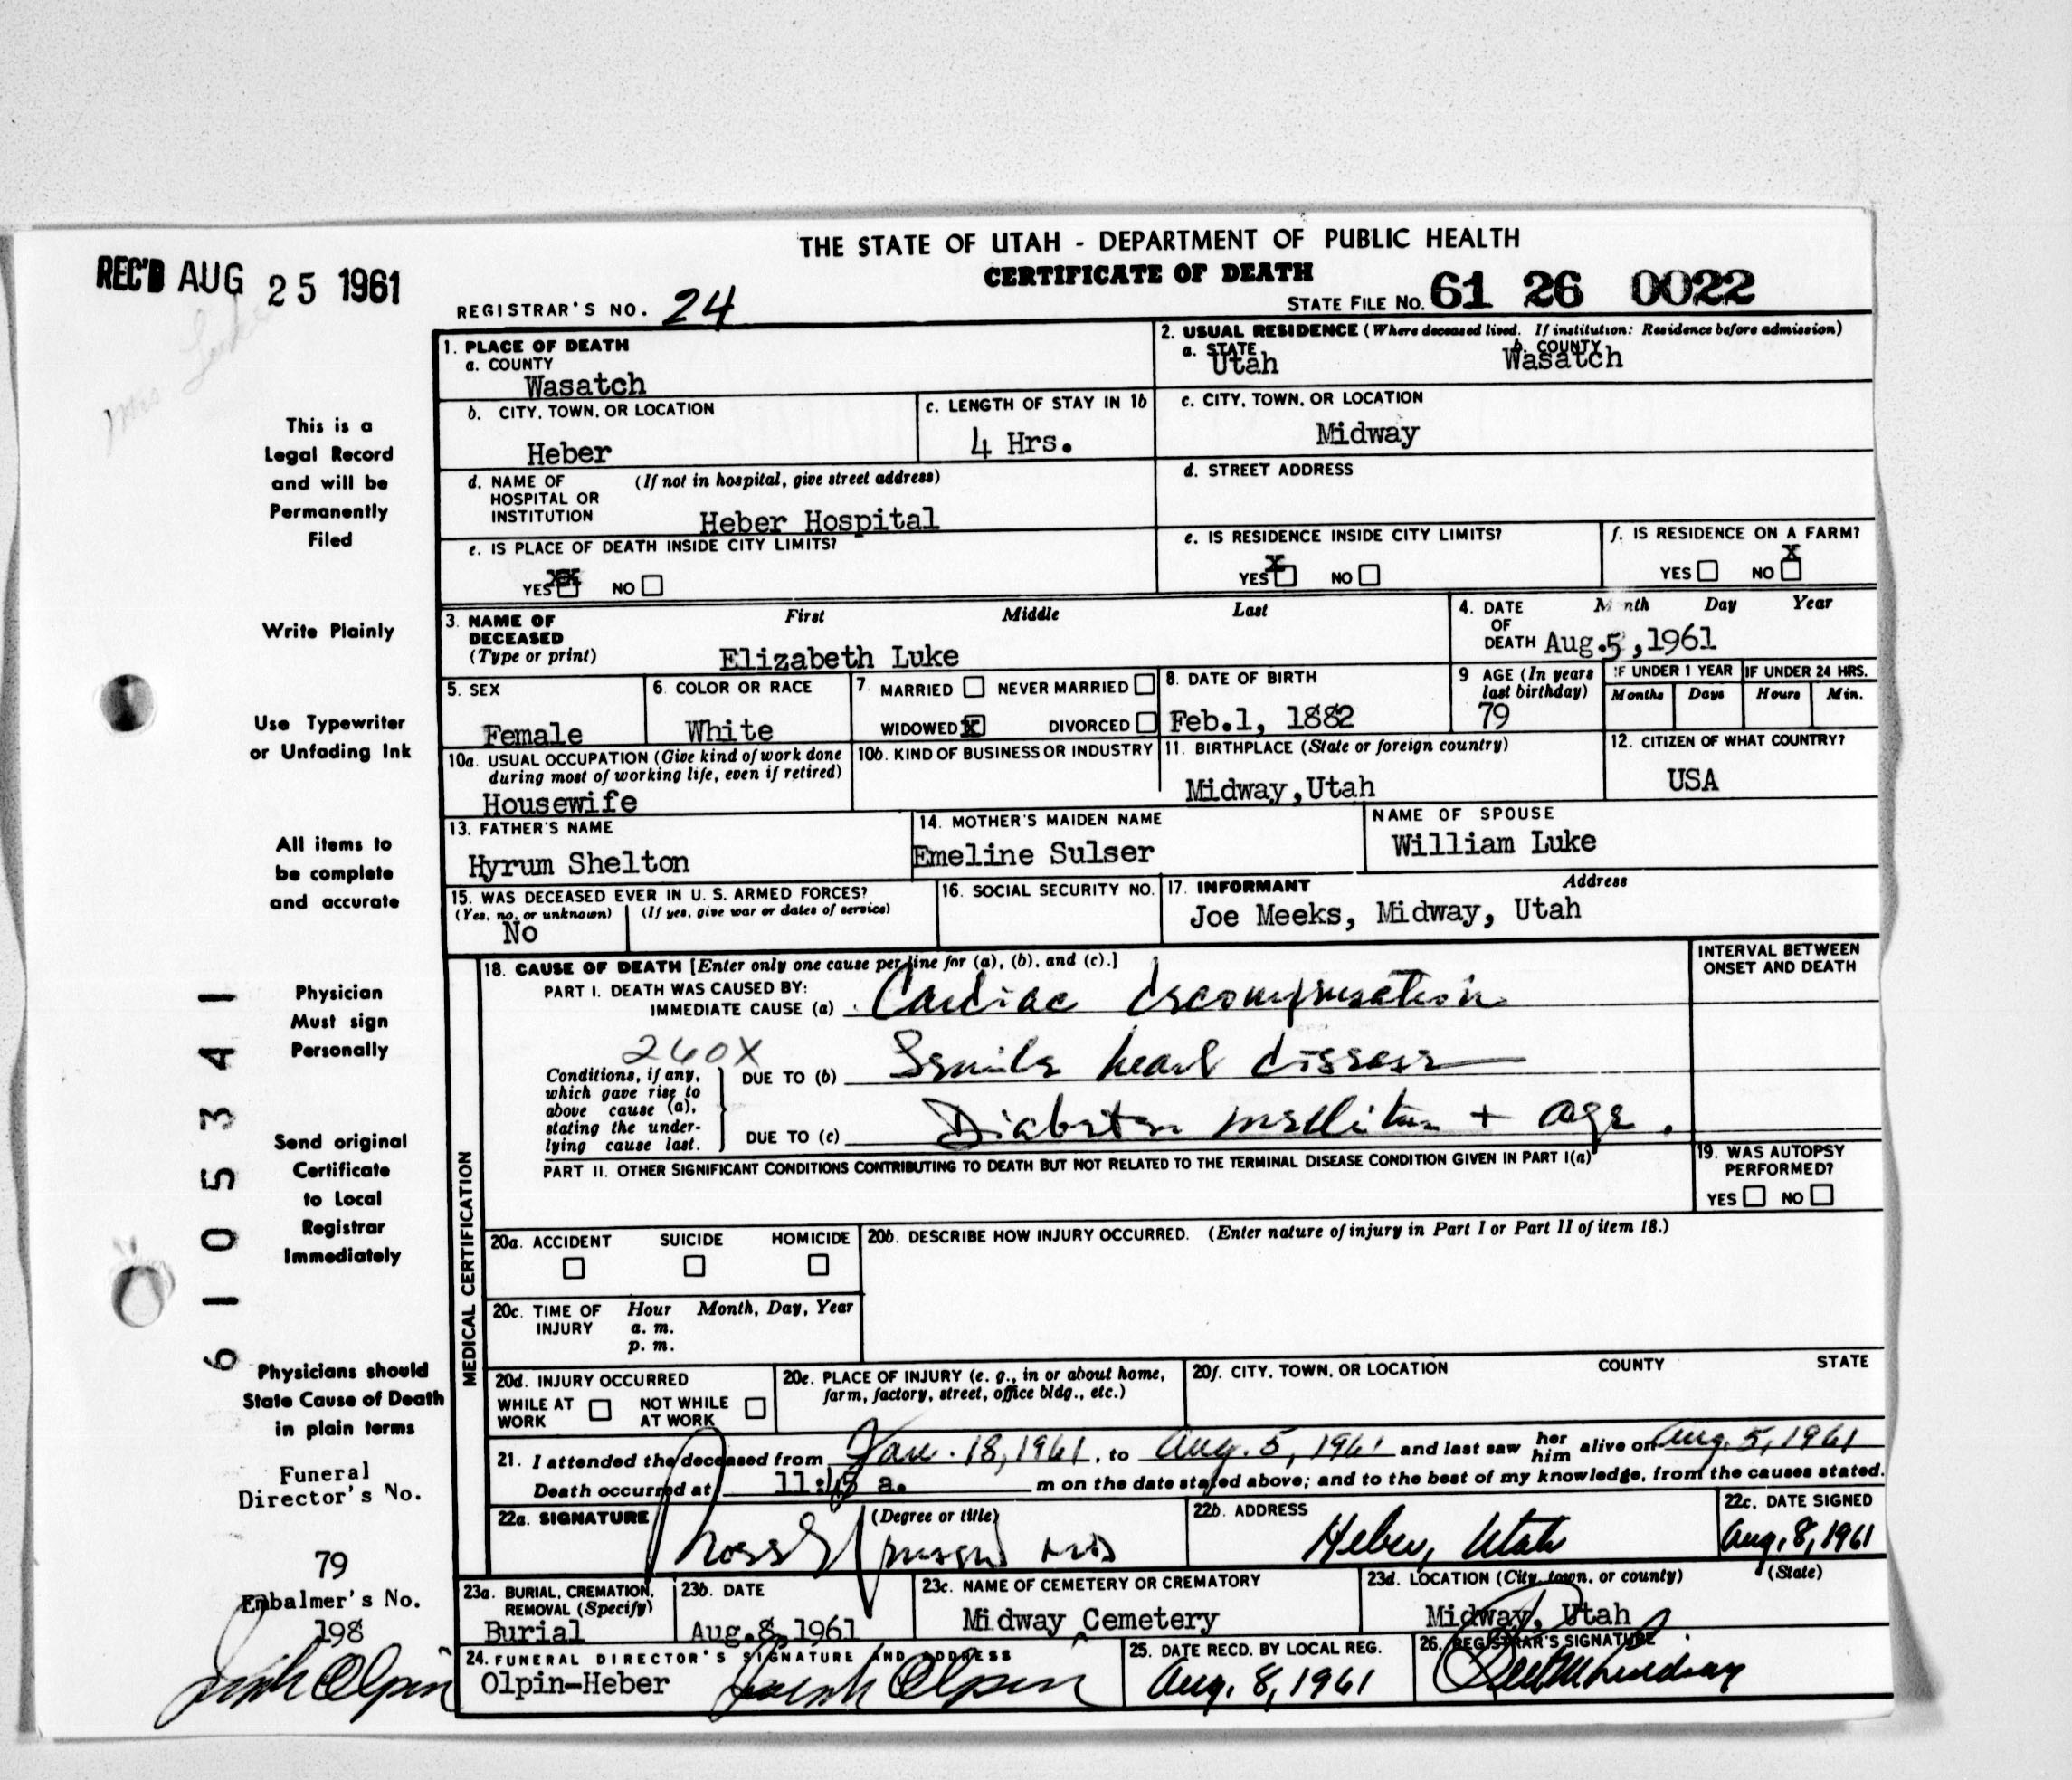 THE STATE OF UTAH - DEPARTMENT OF PUBLIC HEALTH
CERTIFICATE OF DEATH
REC'D AUG 25 1961
REGISTRAR'S NO. 24
STATE FILE NO. 61 26 0022
Mrs Luke
1. PLACE OF DEATH
a. COUNTY
Wasatch
2. USUAL RESIDENCE (Where deceased lived. If institution: Residence before admission)
a. STATE Utah b. COUNTY Wasatch
b. CITY, TOWN, OR LOCATION
Heber
c. LENGTH OF STAY IN 1b
4 Hrs.
c. CITY, TOWN, OR LOCATION
Midway
d. NAME OF HOSPITAL OR INSTITUTION (If not in hospital, give street address)
Heber Hospital
d. STREET ADDRESS
e. IS PLACE OF DEATH INSIDE CITY LIMITS?
YES XX NO
e. IS RESIDENCE INSIDE CITY LIMITS?
YES X NO
f. IS RESIDENCE ON A FARM?
YES NO X
3. NAME OF DECEASED (Type or print)
First Middle Last
Elizabeth Luke
4. DATE OF DEATH
Month Day Year
Aug.5,1961
5. SEX
Female
6. COLOR OR RACE
White
7. MARRIED NEVER MARRIED
WIDOWED X DIVORCED
8. DATE OF BIRTH
Feb.1, 1882
9 AGE (In years last birthday)
79
IF UNDER 1 YEAR
Months Days
IF UNDER 24 HRS.
Hours Min.
10a. USUAL OCCUPATION (Give kind of work done during most of working life, even if retired)
Housewife
10b. KIND OF BUSINESS OR INDUSTRY
11. BIRTHPLACE (State or foreign country)
Midway,Utah
12. CITIZEN OF WHAT COUNTRY?
USA
13. FATHER'S NAME
Hyrum Shelton
14. MOTHER'S MAIDEN NAME
Emeline Sulser
NAME OF SPOUSE
William Luke
15. WAS DECEASED EVER IN U. S. ARMED FORCES?
(Yes, no, or unknown) (If yes, give war or dates of service)
No
16. SOCIAL SECURITY NO.
17. INFORMANT Address
Joe Meeks, Midway, Utah
MEDICAL CERTIFICATION
18. CAUSE OF DEATH [Enter only one cause per line for (a), (b), and (c).]
INTERVAL BETWEEN ONSET AND DEATH
PART I. DEATH WAS CAUSED BY:
IMMEDIATE CAUSE (a) Cardiac decompensation
260X
Conditions, if any, which gave rise to above cause (a), stating the underlying cause last.
DUE TO (b) Senile heart disease
DUE TO (c) Diabetes mellitus + age.
PART II. OTHER SIGNIFICANT CONDITIONS CONTRIBUTING TO DEATH BUT NOT RELATED TO THE TERMINAL DISEASE CONDITION GIVEN IN PART I(a)
19. WAS AUTOPSY PERFORMED?
YES NO
20a. ACCIDENT SUICIDE HOMICIDE
20b. DESCRIBE HOW INJURY OCCURRED. (Enter nature of injury in Part I or Part II of item 18.)
20c. TIME OF INJURY Hour Month, Day, Year
a. m.
p. m.
20d. INJURY OCCURRED
WHILE AT WORK NOT WHILE AT WORK
20e. PLACE OF INJURY (e. g., in or about home, farm, factory, street, office bldg., etc.)
20f. CITY, TOWN, OR LOCATION COUNTY STATE
21. I attended the deceased from Jan. 18, 1961, to Aug. 5, 1961 and last saw her him alive on Aug. 5, 1961
Death occurred at 11:15 a. m on the date stated above; and to the best of my knowledge, from the causes stated.
22a. SIGNATURE (Degree or title)
MD
22b. ADDRESS
Heber, Utah
22c. DATE SIGNED
Aug. 8, 1961
23a. BURIAL, CREMATION, REMOVAL (Specify)
Burial
23b. DATE
Aug.8,1961
23c. NAME OF CEMETERY OR CREMATORY
Midway Cemetery
23d. LOCATION (City, town, or county) (State)
Midway, Utah
24. FUNERAL DIRECTOR'S SIGNATURE AND ADDRESS
Olpin-Heber
25. DATE RECD. BY LOCAL REG.
Aug. 8, 1961
26. REGISTRAR'S SIGNATURE
This is a
Legal Record
and will be
Permanently
Filed
Write Plainly
Use Typewriter
or Unfading Ink
All items to
be complete
and accurate
Physician
Must sign
Personally
Send original
Certificate
to Local
Registrar
Immediately
Physicians should
State Cause of Death
in plain terms
61053411
Funeral
Director's No.
79
Embalmer's No.
198